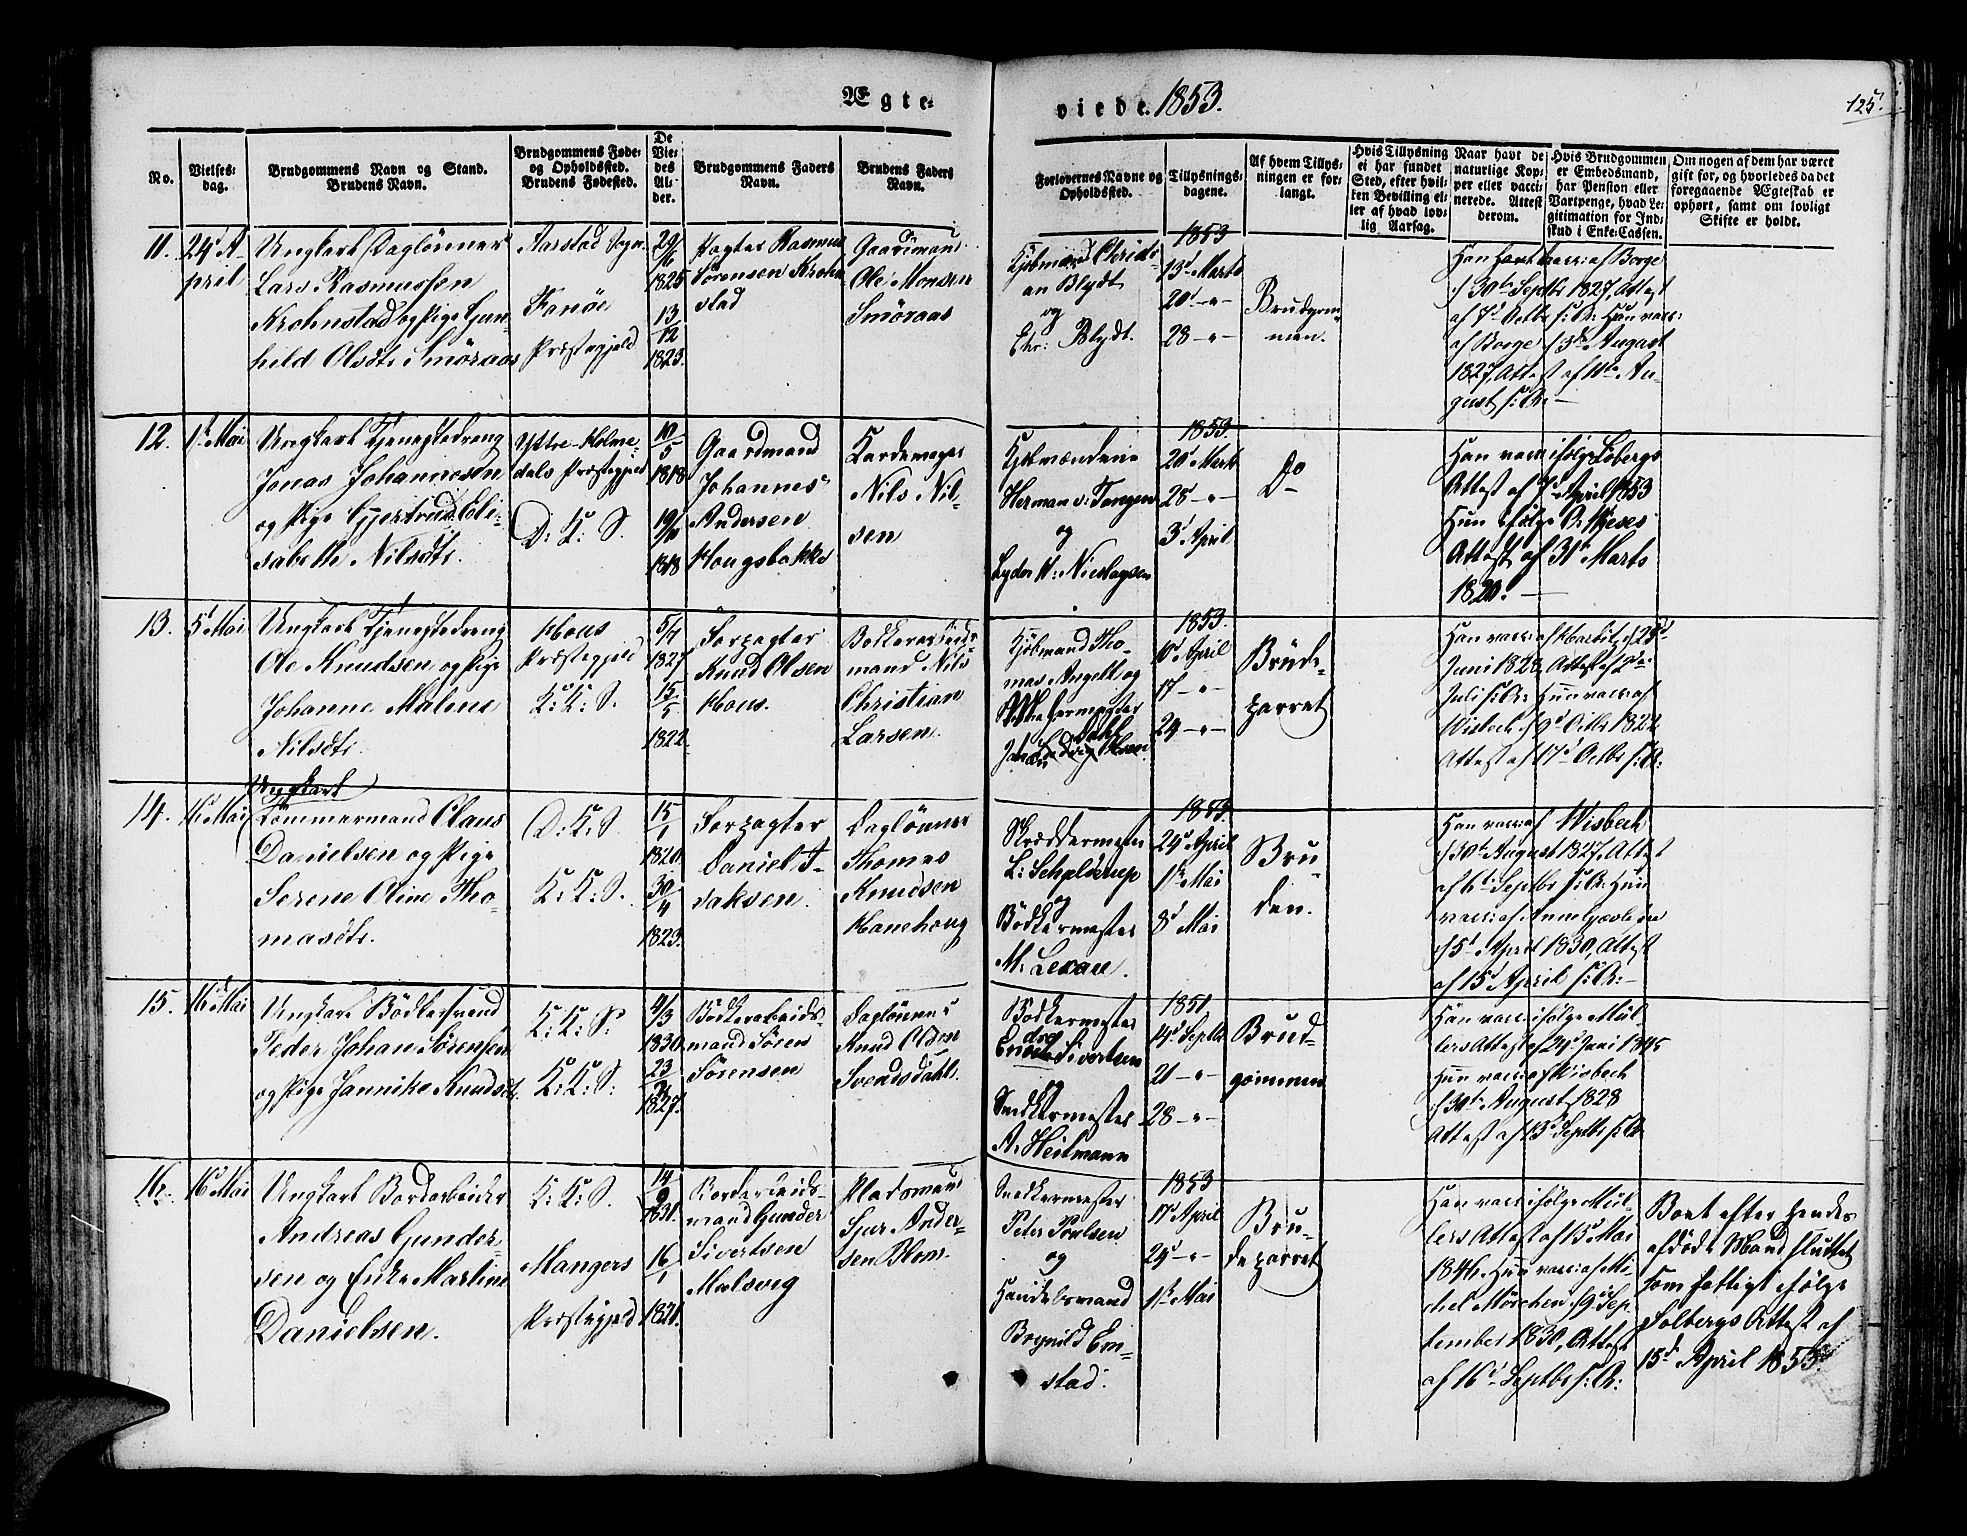 Ægte-
viede. 1853.
125.
No.
Vielses-
dag.
Brudgommens Navn og Stand.
Brudens Navn.
Brudgommens Føde-
og Opholdssted.
Brudens Fødested.
De
Vie-
des
Al-
der.
Brudgommens Faders
Navn.
Brudens Faders
Navn.
Forlovernes Navne og
Opholdssted.
Tillysnings-
dagene.
Af hvem Tillys-
ningen er for-
langt.
Hvis Tillysning
ei har fundet
Sted, efter hvil-
ken Bevilling el-
ler af hvad lov-
lig Aarsag.
Naar havt de
naturlige Kop-
per eller vacci-
nerede. Attest
derom.
Hvis Brudgommen
er Embedsmand,
har Pension eller
Vartpenge, hvad Le-
gitimation for Ind-
skud i Enke-Cassen.
Om nogen af dem har været
gift før, og hvorledes da det
foregaaende Ægteskab er
ophørt, samt om lovligt
Skifte er holdt.
11.
24d A-
pril
Ungkarl Daglønner
Lars Rasmussen
Krohnstad og Pige Gun-
hild Olsdtr Smøraas
Aarstad Sogn
Fanøe
Præstegjeld
29/6
1825
13/12
1823.
Pagter Rasmus
Sørensen Krohn-
stad
Gaardmand
Ole Monsen
Smøraas
Kjøbmand
an Blydt
og
Chr: Blydt.
1853
13d Marts
20d -"-
28 -"-
Brudgom-
men.
Han havt vacc: af Borge
30te Septbr 1827, Attest
af 7d Octbr s: A: Hun vacc:
af Borge 3die August
1827, Attest af 11te Au-
gust s: A: -
12.
1ste Mai
Ungkarl Tjenestedreng
Jonas Johannesen
og Pige Gjertrud Eli-
sabeth Nilsdtr.
Yttre-Holme-
dals Præstegjeld
D: K: S.
10/5
1818
19/11
1818
Gaardmand
Johannes
Andersen
Hougsbakke
Kardemager
Nils Nil-
sen
Kjøbmændene
Herman v: Tangen
og
Lyder W: Nicolaysen
1853.
20d Marts
28 -"-
3d April
Do
Han vacc: ifølge Lobergs
Attest af 7d April 1853
Hun ifølge
Attest af 31te Marts
1820. -
13.
5d Mai
Ungkarl Tjenestedreng
Ole Knudsen og Pige
Johanne Malene
Nilsdtr.
Hous
Præstegjeld
K: K: S.
5/7
1827
15/5
1822.
Forpagter
Knud Olsen
Hous.
Bødkerarbeids-
mand Nils
Christian
Larsen.
Kjøbmand Tho-
mas Angell og
1853.
10d April
17 -"-
24 -"-
Brude-
parret
Han vacc: af 25d
Juni 1828, Attest af 2den
Juli s: A: Hun vacc: af
Wisbech 9d Octbr 1822
Attest af 17d Octbr s: A:
14.
16d Mai
Ungkarl
Tømmermand Claus
Danielsen og Pige
Serene Oline Tho-
masdtr.
D: K: S.
K: K: S.
15/1
1820.
30/4
1823.
Forpagter
Daniel I-
saksen.
Daglønner
Thomas
Knudsen
Hanehoug
Skræddermester
L: Schelderup
og
Bødkermester
M. Lexau.
1853.
24d April
1ste Mai
8d Mai
Bru-
den.
Han vacc: af Wisbech
30te August 1827, Attest
af 6te Septbr s: A: Hun
vacc: af Anne
5d April 1830, Attest
af 15d April s: A: -
15.
16d Mai
Ungkarl Bødkersvend
Peder Johan Sørensen
og Pige Jannike Knudsdtr.
K: K: S.
K: K: S:
4/3
1830.
23/2
1827.
Bødkerarbeids-
mand Søren
Sørensen
Daglønner
Knud Olsen
Svendsdahl.
Bødkermester
Sivertsen
og
Snedkermester
A. Heitmann
1851
14d Septbr
21 -"-
28 -"-
Brud-
gommen
Han vacc: ifølge Mül-
lers Attest af 24d Juni 1845
Hun vacc: af Wisbech
30te August 1828
Attest af 13d Septbr s: A:
16.
16d Mai
Ungkarl Bordarbeider
Andreas Gunder-
sen og Enke Martine
Danielsen.
K: K: S.
Mangers
Præstegjeld
14/9
1831.
16/1
1821.
Bordarbeids-
mand Gunder
Sivertsen
Malsvig
Pladsmand
Sjur Ander-
sen Blom.
Snedkermester
Peter Poulsen
og
Handelsmand
Boynild Em-
stad.
1853
17d April
24d -"-
1ste Mai
Bru-
deparret
Han vacc: ifølge Mül-
lers Attest af 15d Mai
1846. Hun vacc: af Mi-
chel Mørchen 9d Sep-
tember 1830, Attest
af 16d Septbr s: A:
Boet efter hendes
afdøde Mand sluttet
som fattigt ifølge
Solbergs Attest af
15d April 1853